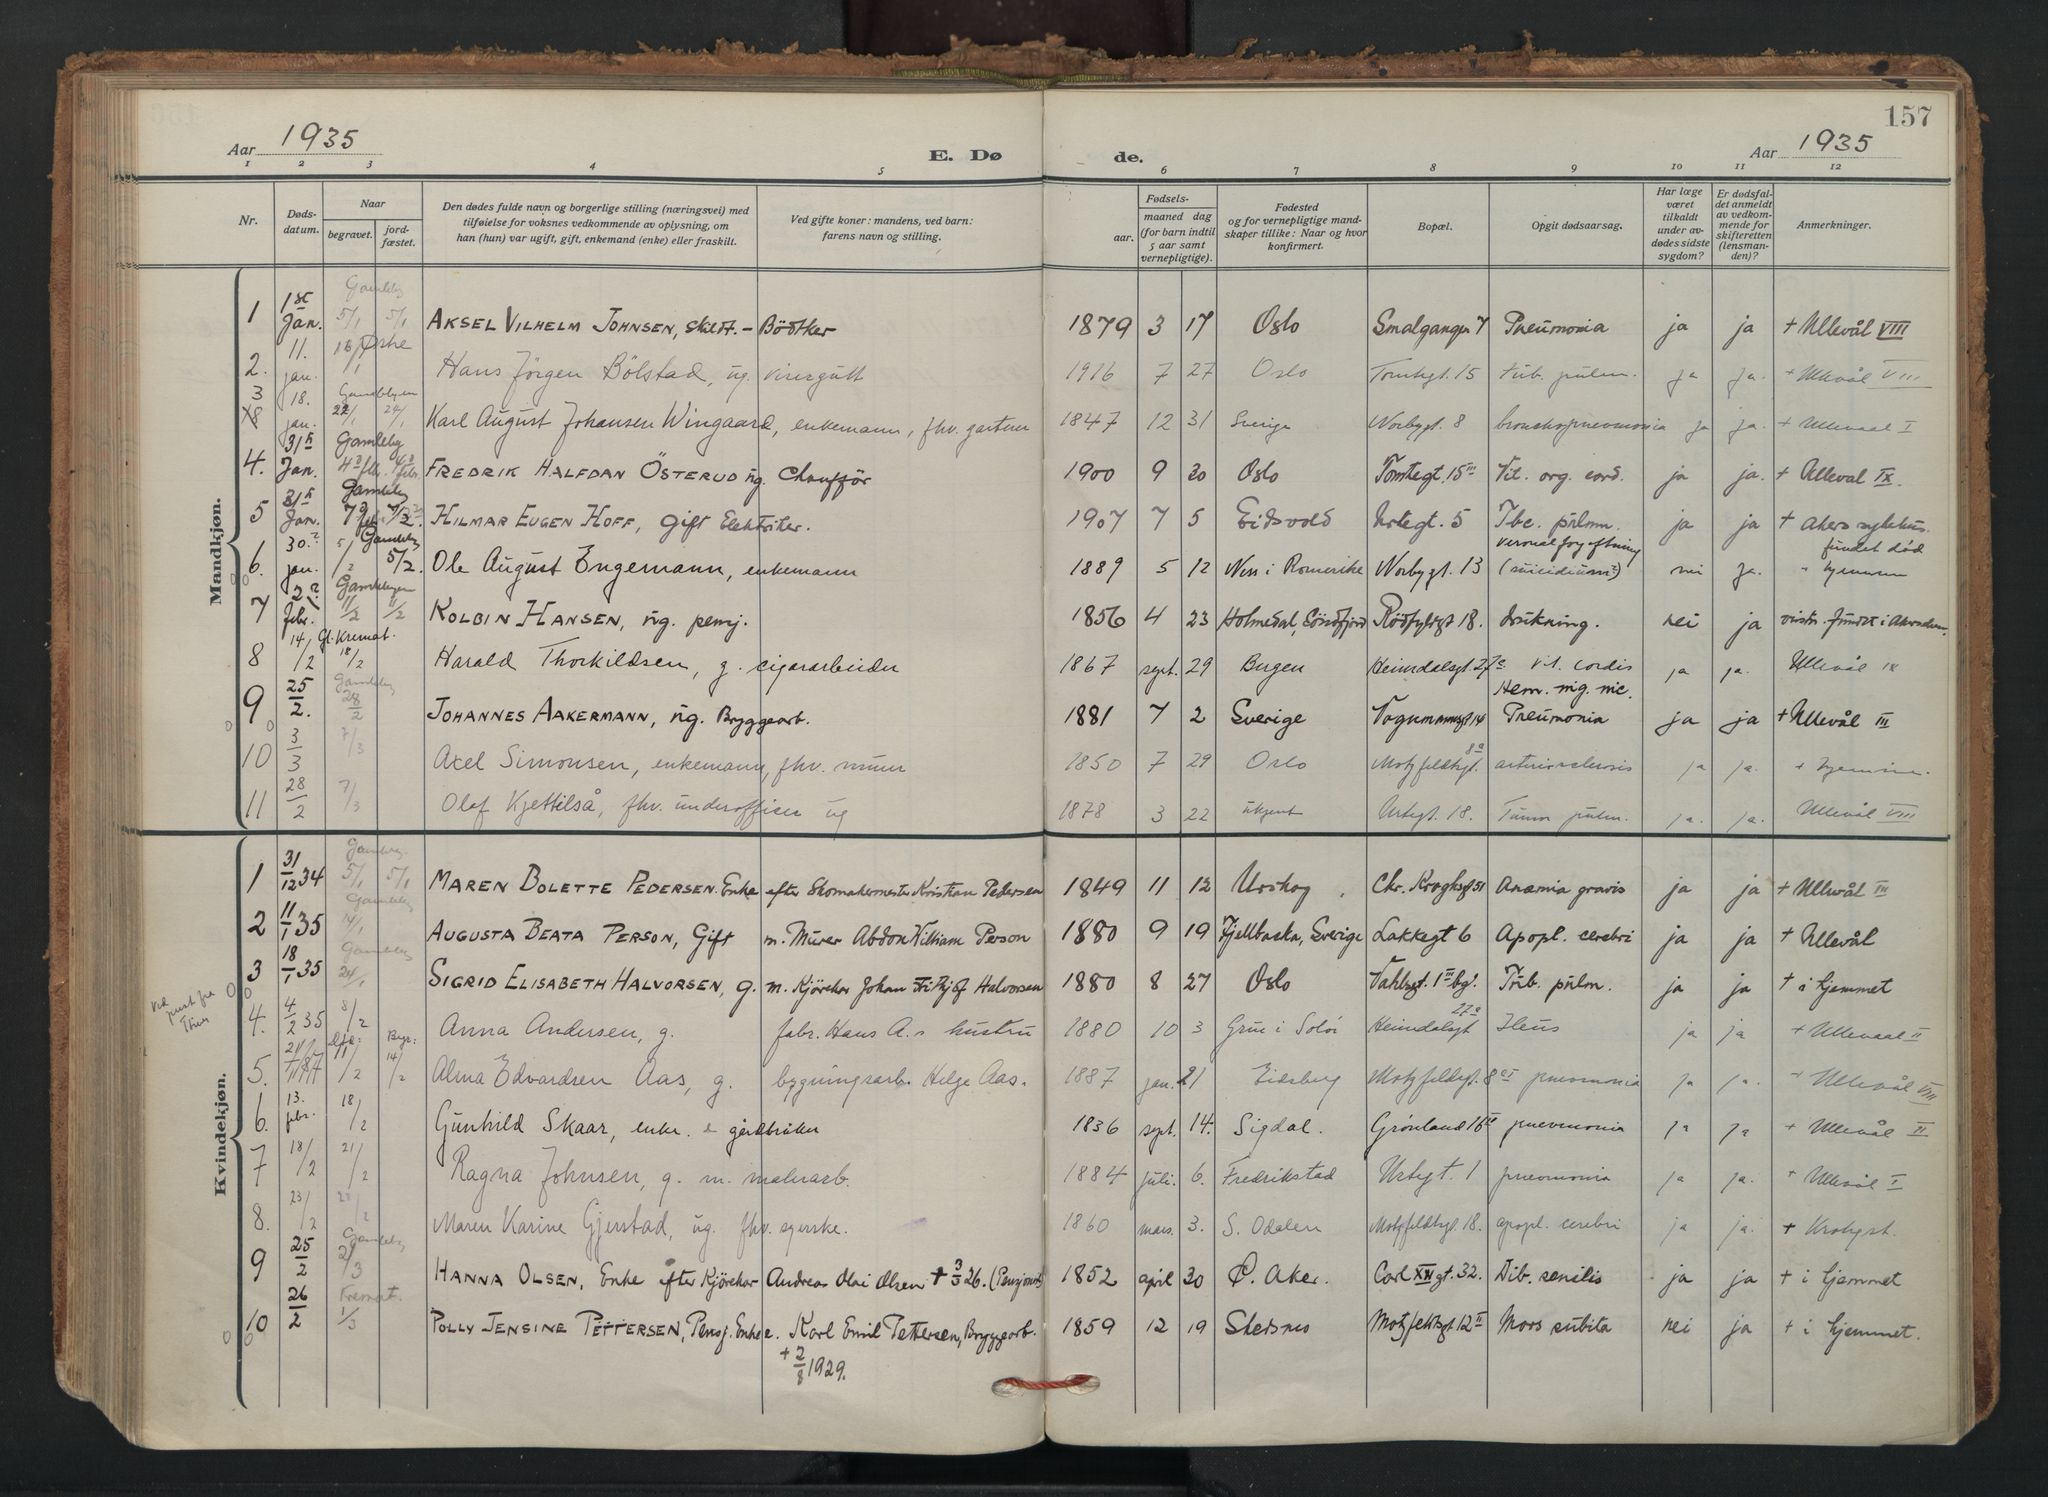 157
Aar 1935
E. Dø de.
Aar 1935
1 2 3 4 5 6 7 8 9 10 11 12
Nr.
Døds-datum.
Naar
begravet.
jord-fæstet.
Den dødes fulde navn og borgerlige stilling (næringsvei) med
tilføielse for voksnes vedkommende av oplysning, om
han (hun) var ugift, gift, enkemand (enke) eller fraskilt.
Ved gifte koner: mandens, ved barn:
farens navn og stilling.
Fødsels-
aar.
maaned dag
(for barn indtil
5 aar samt
vernepligtige).
Fødested
og for vernepligtige mand-
skaper tillike: Naar og hvor
konfirmert.
Bopæl.
Opgit dødsaarsag.
Har læge
været
tilkaldt
under av-
dødes sidste
sygdom?
Er dødsfal-
det anmeldt
av vedkom-
mende for
skifteretten
(lensman-
den)?
Anmerkninger.
Mandkjøn.
Gamleby
1 1ste Jan. 5/1 5/1 AKSEL VILHELM JOHNSEN, skildt. - Bödtker 1879 3 17 Oslo Smalgangen 7 Pneumonia ja ja + Ullevål VIII
Østre
2. 11. jan. 16/1 Hans Jörgen Bölstad, ug. visergutt 1916 7 27 Oslo Tomtegt. 15 tub. pulm. ja ja. + Ullevål VIII
Gamlebyen
3 18. jan. 22/1 24/1 Karl August Johansen Wingaard, enkemann, fhv. gartner 1847 12 31 Sverige Norbygt. 8 bronchopneumonia ja ja. + Ullevaal I
Gamleby
4. 31te Jan. 4de febr. 4de febr. FREDRIK HALFDAN ÖSTERUD ug. Chaufför 1900 9 20 Oslo Tomtegt. 15 III Vit. org. cord. ja ja. + Ulleval IX.
Gamleby
5 31te Jan. 7de febr. 7/2. HILMAR EUGEN HOFF, gift Elektriker. 1907 7 5 Eidsvold Urtegt. 5 Tbc. pulm. ja ja + Akers sykehus.
Gamleby
6. 30. jan. 5/2 5/2. Ole August Engemann, enkemann 1889 5 12 Nes i Romerike Norbygt. 13 veronalforgiftning (suicidium?) nei ja. fundet död i hjemmet
Gamlebyen
7 2? febr. 11/2 11/2 KOLBIN HANSEN, ug. pensj. 1856 4 23 Holmedal, Söndfjord Rödfyldgt 18. drukning. nei ja fundet i Akerselven.
Gl. Kremat.
8 14/2 18/2 Harald Thorkildsen, g. cigararbeider 1867 sept. 29 Bergen Heimdalsgt. 27c vit. cordis ja ja. Ullevål IX
Gamleby
9 25/2. 28/2 JOHANNES AAKERMANN, ug. Bryggearb. 1881 7 2 Sverige Vognmannsgt 14 Pneumonia ja ja + Ullevål III
10 3/3 7/3 Axel Simonsen, enkemann, fhv. murer 1850 7 29 Oslo Motzfeldtgt. 8a arteriosclerosis ja ja. + hjemme.
11 28/2 7/3 Olaf Kjettilså, fhv. underofficer ug 1878 3 22 ukjent Urtegt. 18. Tumor pulm. ja. ja. Ullevål VIII
Kvindekjøn.
Gamleby
1 31/12 34 5/1 5/1 MAREN BOLETTE PEDERSEN. Enke efter Skomakermester Kristian Pedersen 1849 11 12 Urskog Chr. Kroghsgt 51 Anæmia gravis ja ja + Ullevål III
Gamleby
2 11/1 35 14/1 AUGUSTA BEATA PERSON, Gift m. Murer Abdon William Person 1880 9 19 Fjellbacka, Sverige Lakkegt 6 Apopl. cerebri ja ja + Ullevål
Gamleby
3 18/1 35 24/1 SIGRID ELISABETH HALVORSEN, g. m. Kjörekar Johan Fritjof Halvorsen 1880 8 27 Oslo Vahlsgt. 1 III bg. Tub. pulm. ja ja + i hjemmet
4. 4/2 35 8/2 Anna Andersen, g. fabr. Hans A.s hustru 1880 10 3 Grue i Solör Heimdalsgt 27a Ileus ja ja + Ullevaal II
5. 11/2 14/2 Alma Edvardsen Aas, g. bygningsarb. Helge Aas. 1887 jan. 21 Eidsberg Motzfeldtgt. 8 pneumonia ja ja. + Ullevål VIII
6. 13. febr. 18/2 Gunhild Skaar, enke. e gårdbruker 1836 sept. 14. Sigdal. Grönland 16 pneumonia ja ja + Ullevål II
7 18/2 21/2 Ragna Johnsen, g. m. malerarb. 1884 juli. 6. Fredrikstad Urtegt. 1 pneumonia ja ja. + Ullevål I
8. 23/2 28/2 Maren Karine Gjerstad, ug. fhv. syerske. 1860 mars. 3. S. Odalen Motzfeldtgt. 18. apopl. cerebri ja ja. + Krohgst.
Gamleby
9 25/2 2/3 HANNA OLSEN, Enke efter Kjörekar Andreas Olai Olsen + 3/3 26. (Pensjonist) 1852 april 30 Ö. Aker. Carl XII gt. 32. Dib. senilis ja ja + i hjemmet
Kremat.
10 26/2 1/3 POLLY JENSINE PETTERSEN, Pensj. Enke e. Karl Emil Pettersen, Bryggearb. 1859 12 19 Skedsmo Motzfeldtgt 12 II Mors subita nei ja + i hjemmet.
+ 2/8 1929.